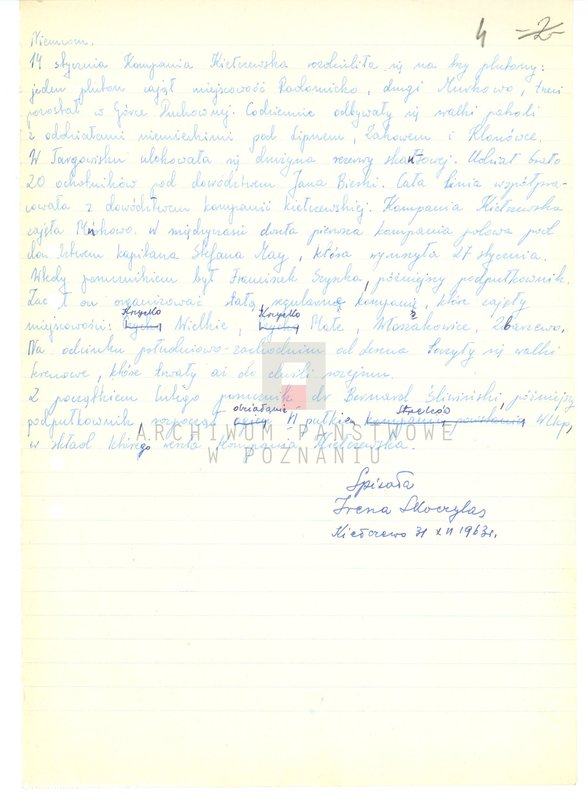 4 -2-
Niemcom.
14 stycznia Kompania Kiełczewska rozdzieliła się na trzy plutony:
jeden pluton zajął miejscowość Radomicko, drugi Murkowo, trzeci
pozostał w Górce Duchownej. Codziennie odbywały się walki patroli
z oddziałami niemieckimi pod Lipnem, Żakowem i Klonówcu.
W Targowisku ulokowała się drużyna rezerwy skautowej. Udział brało
20 ochotników pod dowództwem Jana Bieski. Cała linia współpra-
cowała z dowództwem kompanii kiełczewskiej. Kompania Kiełczewska
zajęła Murkowo. W międzyczasie doszła pierwsza kompania polowa pod
dowództwem kapitana Stefana May, która wyruszyła 27 stycznia.
Wtedy porucznikiem był Franciszek Szynka, późniejszy podpułkownik.
Zaczął on organizować stałą regularną kompanię, które zajęły
miejscowości: Krzycko Wielkie, Krzycko Małe, Włoszakowice, Zbarzewo.
Na odcinku południowo-zachodnim od Leszna toczyły się walki
krwawe, które trwały aż do chwili rozejmu.
Z początkiem lutego porucznik dr Bernard Śliwiński, późniejszy
podpułkownik rozpoczął działanie pułkiem Strzelców Wlkp,
w skład którego weszła Kompania Kiełczewska.
ARCHIWUM PAŃSTWOWE
W POZNANIU
Spisała
Irena Skoczylas
Kiełczewo 31 XII 1963r.